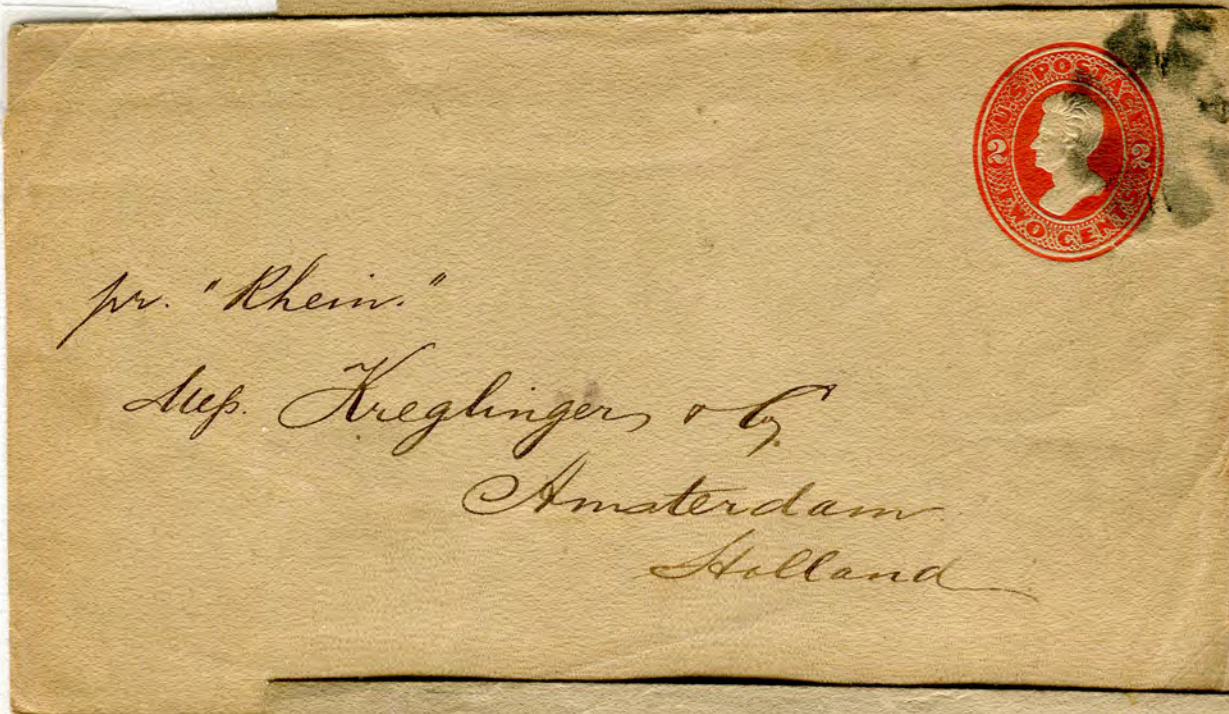 U.S. POSTAGE
2 2
TWO CENTS
pr. "Rhein."
Mess. Kreglinger & Co.
Amsterdam
Holland